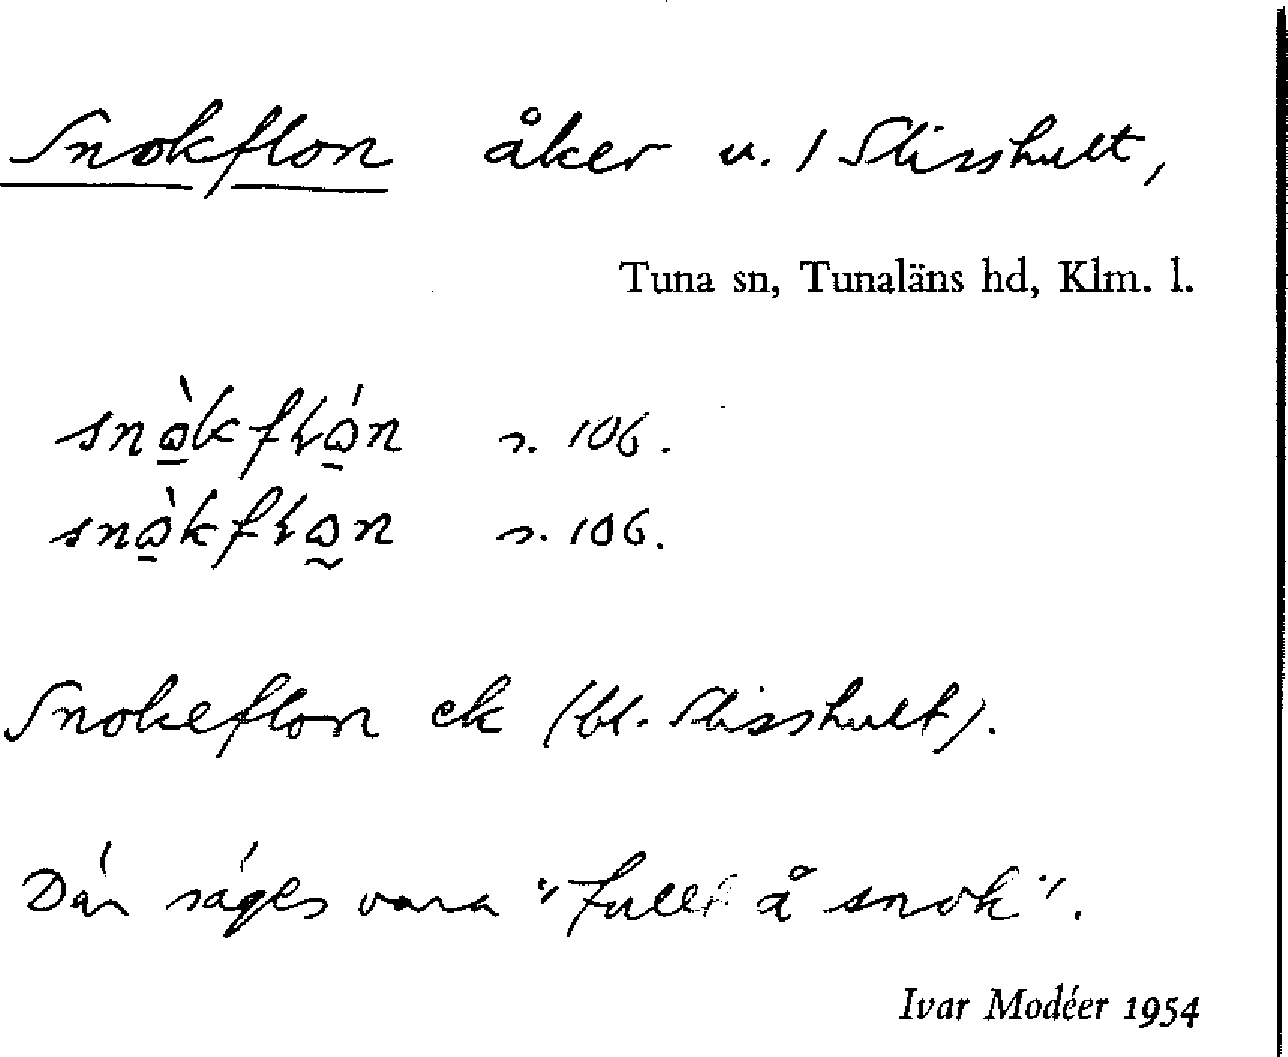 Snokflon åker u. / Slisshult,
Tuna sn, Tunaläns hd, Klm. l.
s. 106.
s. 106.
Snokeflon ek (bl. Slisshult).
Där säges vara "fullt å snok".
Ivar Modéer 1954